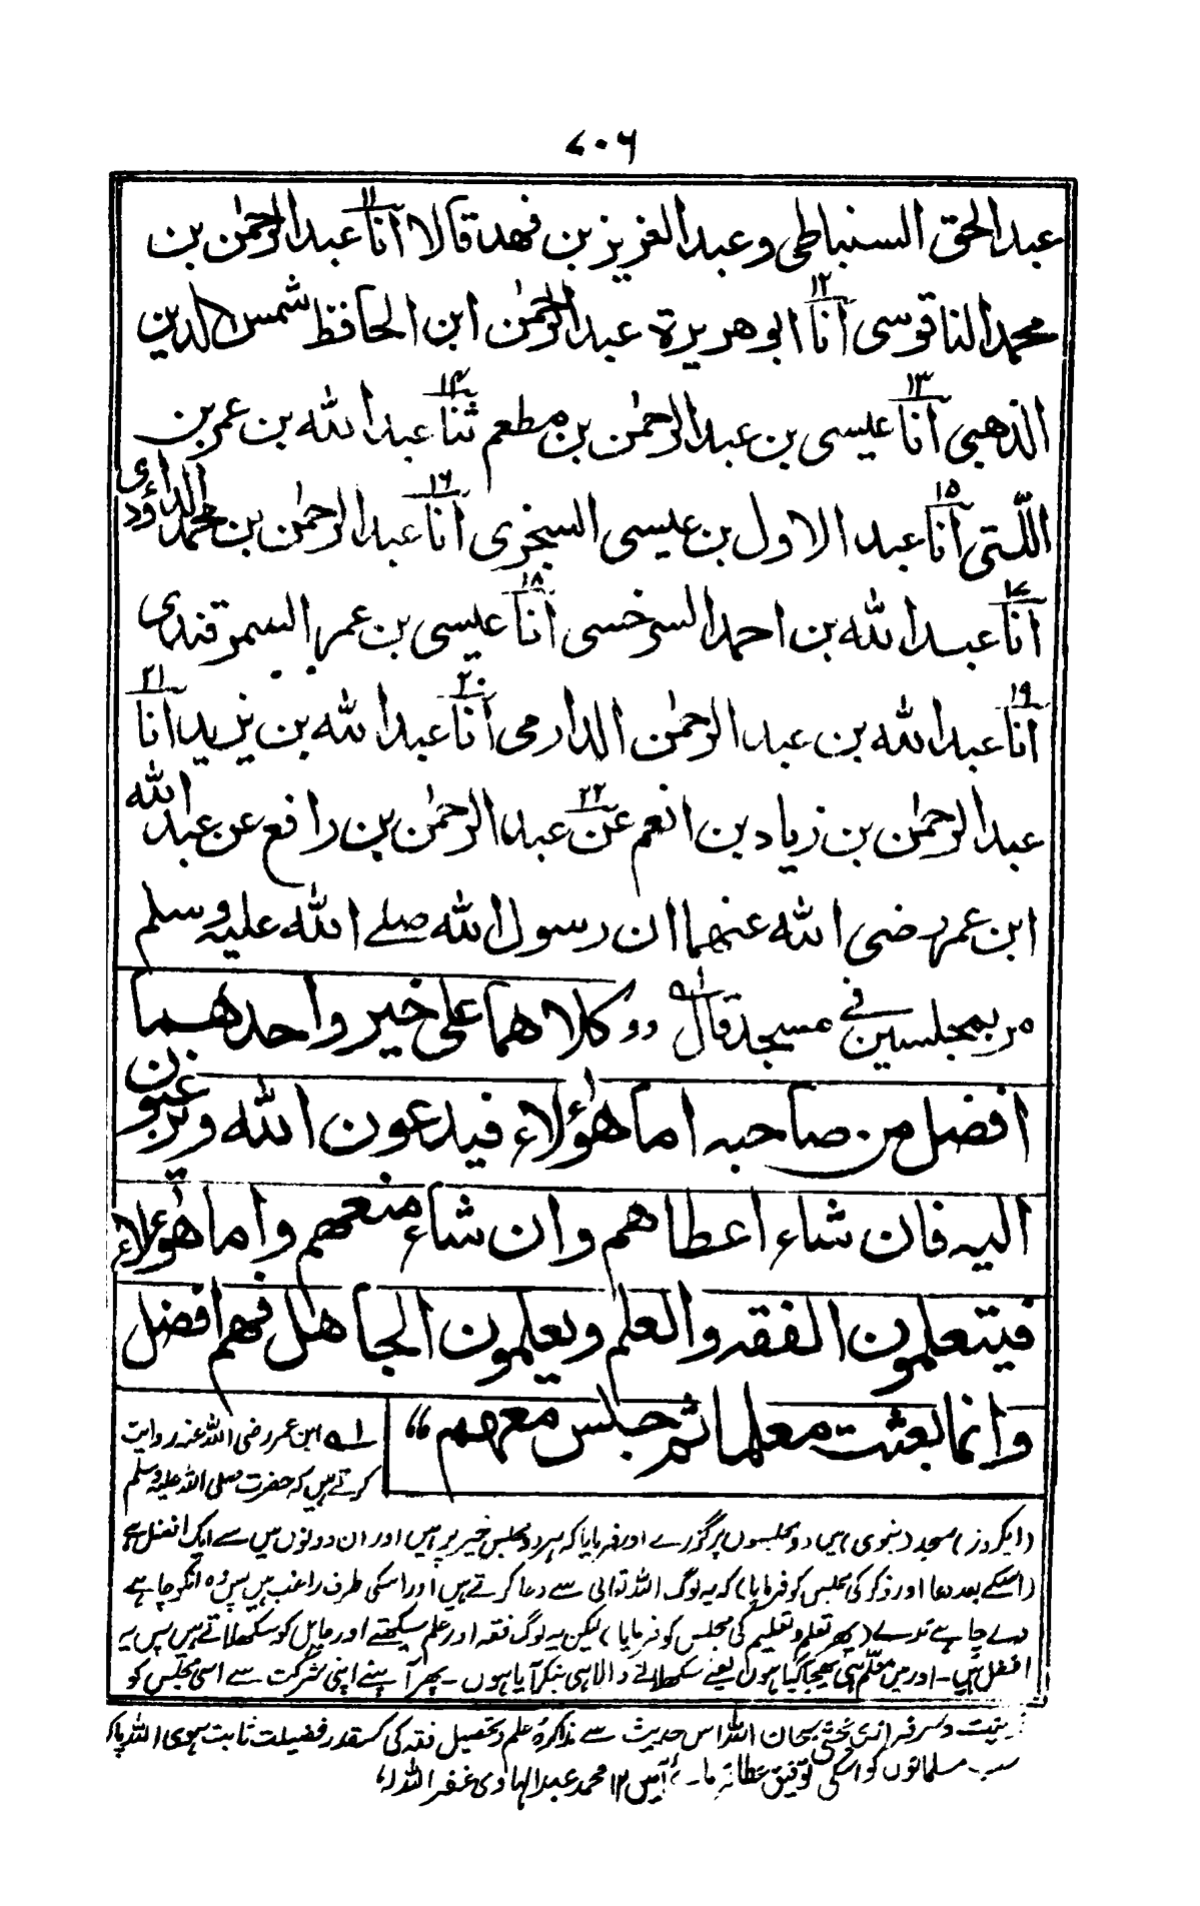 ۷۰۶
عبد الحق السنباطی وعبد العزیز بن فهد قالا انا۱۱ عبد الرحمٰن بن
محمد الناقوسی انا۱۲ ابو هریرة عبد الرحمٰن ابن الحافظ شمس الدین
الذهبی انا۱۳ عیسی بن عبد الرحمٰن بن مطعم ثنا۱۴ عبد الله بن عمر بن
اللّتی انا۱۵ عبد الاول بن عیسی السنجری انا۱۶ عبد الرحمٰن بن محمد الداؤدی
انا۱۷ عبد الله بن احمد السرخسی انا۱۸ عیسی بن عمر السمرقندی
انا۱۹ عبد الله بن عبد الرحمٰن الدارمی انا۲۰ عبد الله بن یزید انا۲۱
عبد الرحمٰن بن زیاد بن انعم عن۲۲ عبد الرحمٰن بن رافع عن عبد الله
ابن عمر رضی الله عنهما ان رسول الله صلے الله علیه وسلم
مر بمجلسین فی مسجده قال۱؎ ”کلاهما علی خیر واحدهما
افضل من صاحبه اما هٰؤلاء فیدعون الله ویرغبون
الیه فان شاء اعطاهم وان شاء منعهم واما هٰؤلاء
فیتعلمون الفقه والعلم ویعلمون الجاهل فهم افضل
وانما بعثت معلما ثم جلس معهم“
۱؎ ابن عمر رضی اللہ عنہ روایت
کرتے ہیں کہ حضرت صلی اللہ علیہ وسلم
(ایکروز) مسجد (نبوی) میں دو مجلسوں پر گزرے اور فرمایا کہ ہر دو مجلس خیر پر ہیں اور ان دونوں میں سے ایک افضل ہے
(اسکے بعد دعا اور ذکر کی مجلس کو فرمایا) کہ یہ لوگ اللہ تعالی سے دعا کرتے ہیں اور اسکی طرف راغب ہیں پس وہ انکو چاہے
دے چاہے نہ دے (پھر تعلم و تعلیم کی مجلس کو فرمایا) لیکن یہ لوگ فقہ اور علم سیکھتے اور جاہل کو سکھلاتے ہیں پس یہ
افضل ہیں۔ اور میں معلّم ہی بھیجا گیا ہوں یعنے سکھلانے والا ہی بنکر آیا ہوں۔ پھر آپنے اپنی شرکت سے اسی مجلس کو
زینت و سرفرازی بخشی سبحان اللہ اس حدیث سے مذاکرہ علم و تحصیل فقہ کی کسقدر فضیلت ثابت ہوی اللہ پاک
سب مسلمانوں کو اسکی توفیق عطا فرما۔ آمین ۱۲ محمد عبد الہادی غفر اللہ لہ